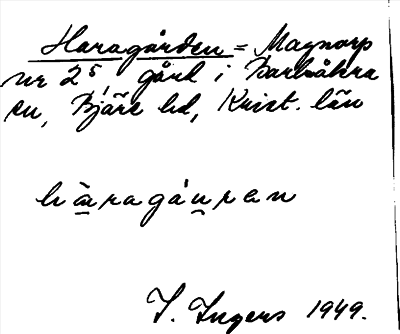 Haragården = Magnarp
nr 2⁵, gård i Barkåkra
sn, Bjäre hd, Krist. län
hàragáu̠ren
I. Ingers 1949.